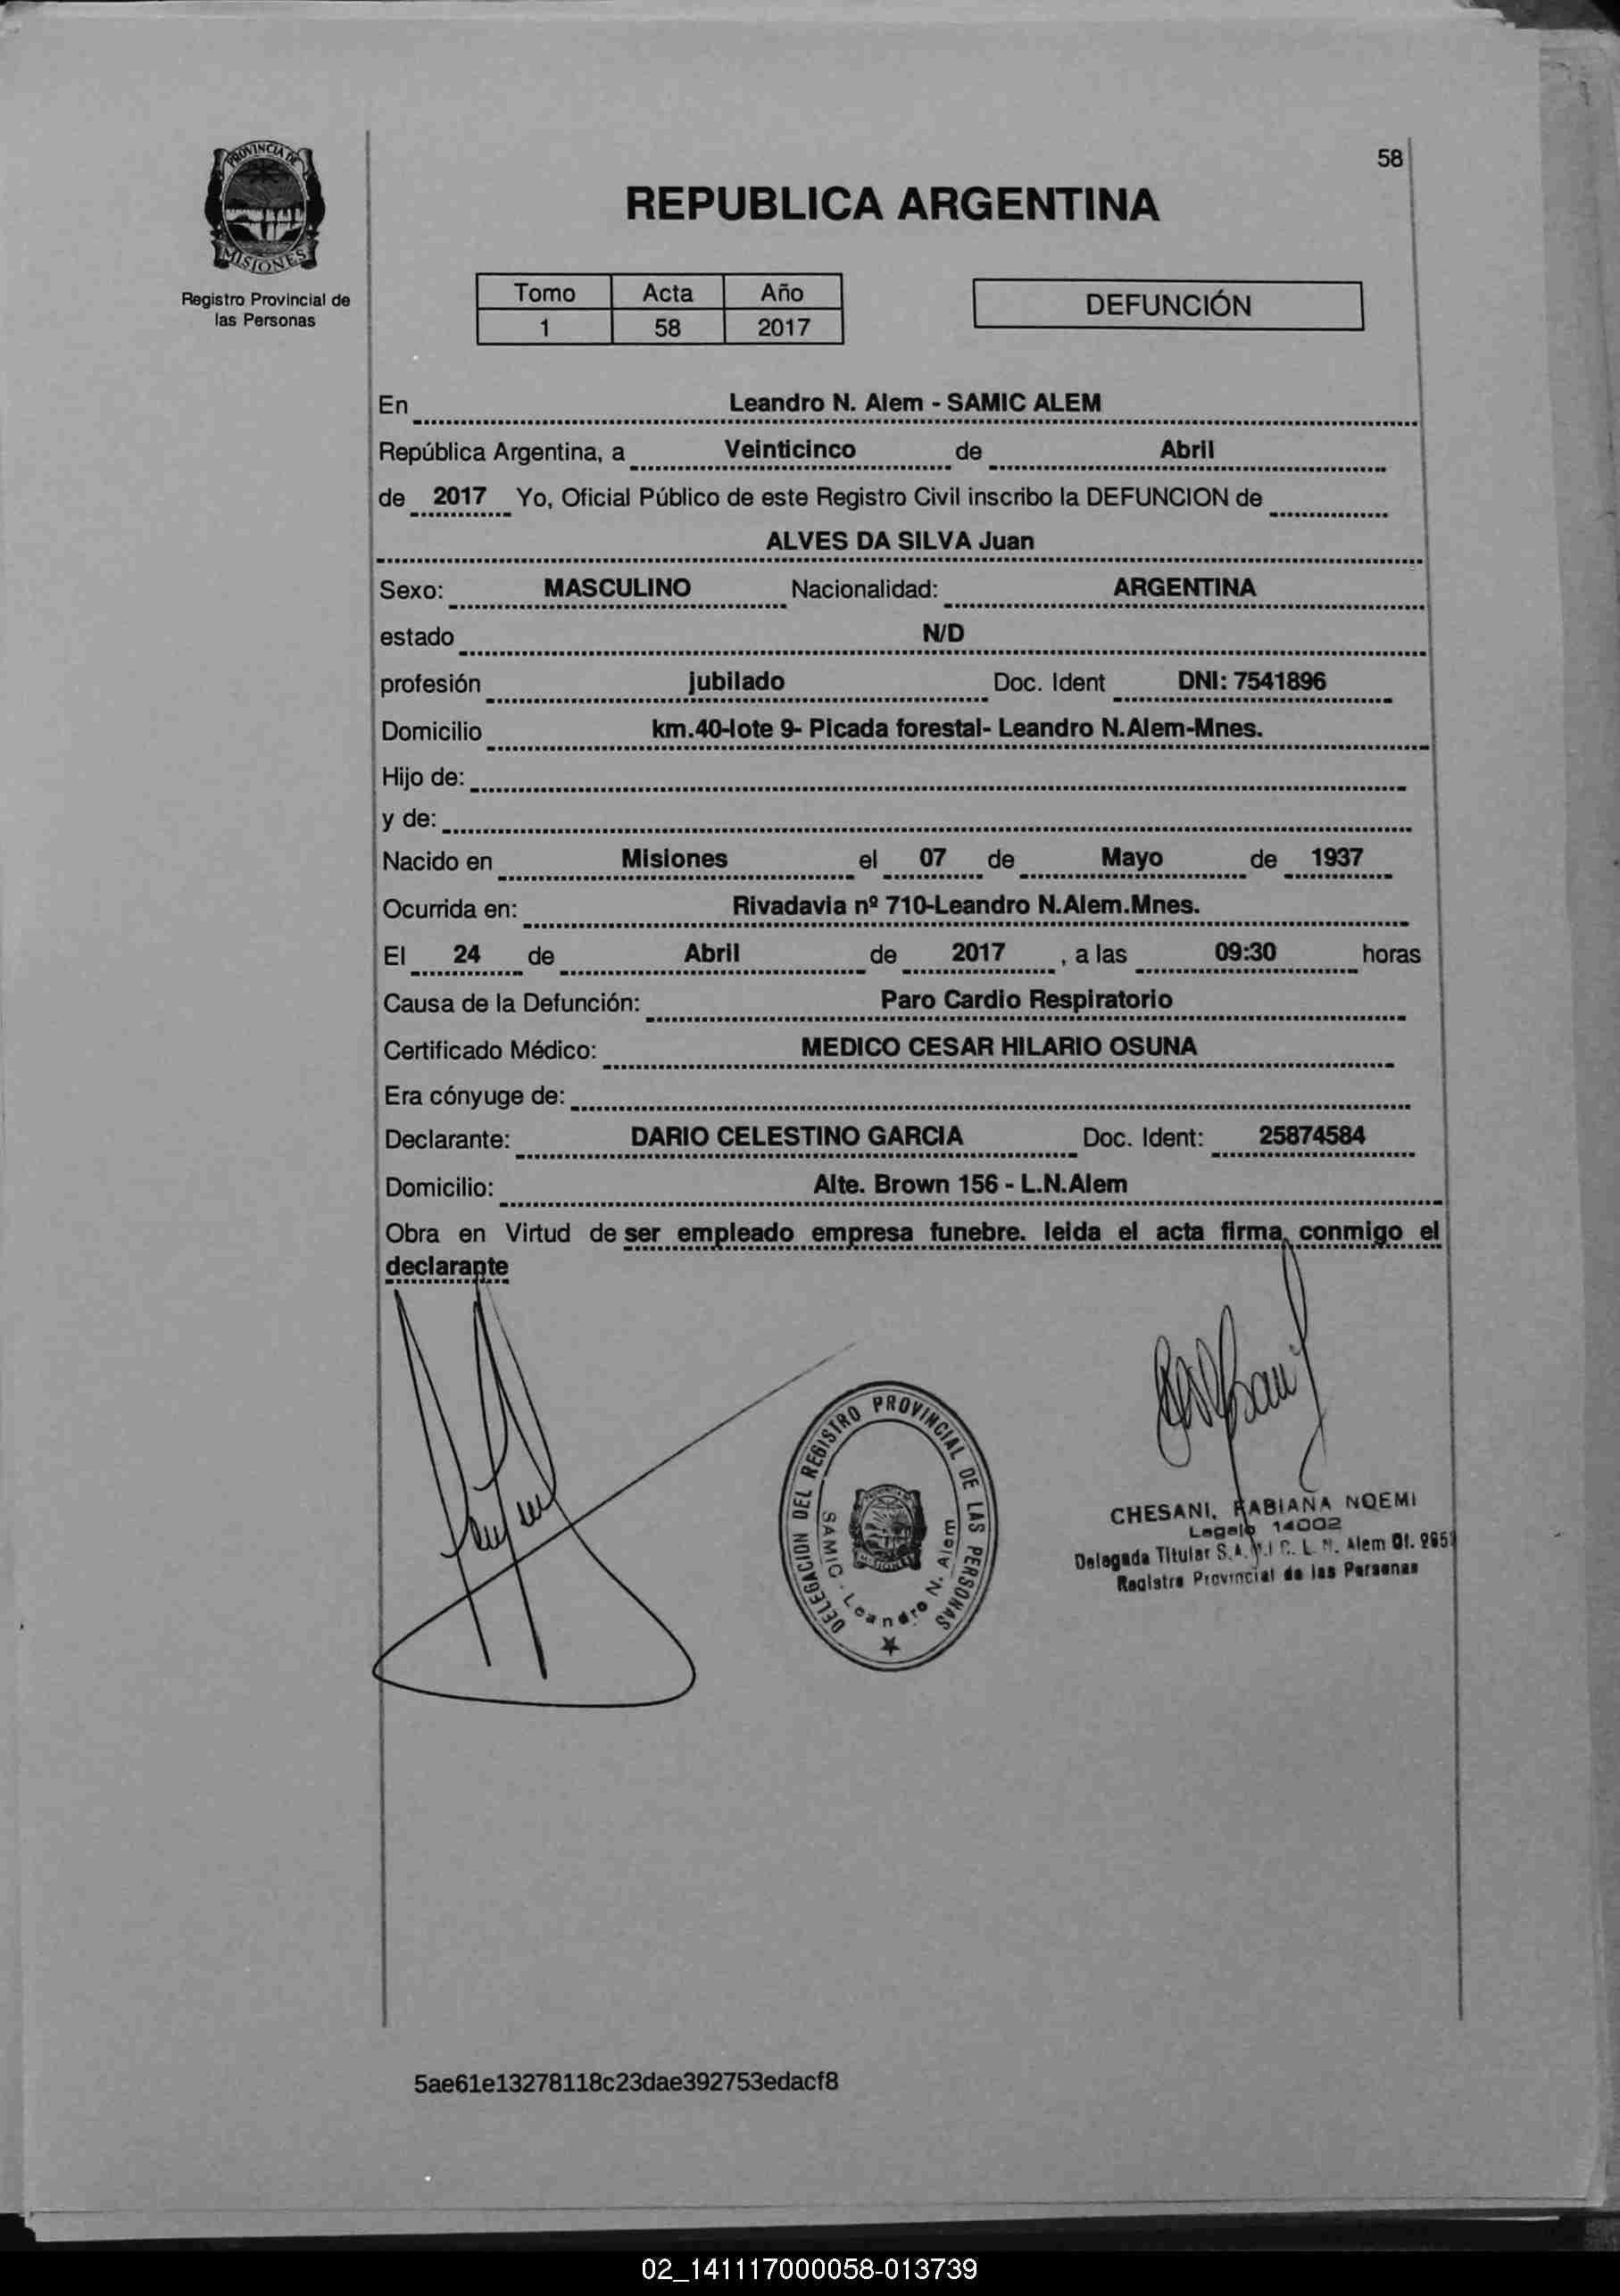 58
PROVINCIA DE
MISIONES
Registro Provincial de
las Personas
REPUBLICA ARGENTINA
Tomo Acta Año
1 58 2017
DEFUNCIÓN
En Leandro N. Alem - SAMIC ALEM
República Argentina, a Veinticinco de Abril
de 2017 Yo, Oficial Público de este Registro Civil inscribo la DEFUNCION de
ALVES DA SILVA Juan
Sexo: MASCULINO Nacionalidad: ARGENTINA
estado N/D
profesión jubilado Doc. Ident DNI: 7541896
Domicilio km.40-lote 9- Picada forestal- Leandro N.Alem-Mnes.
Hijo de:
y de:
Nacido en Misiones el 07 de Mayo de 1937
Ocurrida en: Rivadavia nº 710-Leandro N.Alem.Mnes.
El 24 de Abril de 2017 , a las 09:30 horas
Causa de la Defunción: Paro Cardio Respiratorio
Certificado Médico: MEDICO CESAR HILARIO OSUNA
Era cónyuge de:
Declarante: DARIO CELESTINO GARCIA Doc. Ident: 25874584
Domicilio: Alte. Brown 156 - L.N.Alem
Obra en Virtud de ser empleado empresa funebre. leida el acta firma conmigo el
declarante
DELEGACION DEL REGISTRO PROVINCIAL DE LAS PERSONAS
SAMIC - Leandro N. Alem
CHESANI, FABIANA NOEMI
Legajo 14002
Delegada Titular S.A.M.I.C. L. N. Alem Of. 2651
Registro Provincial de las Personas
5ae61e13278118c23dae392753edacf8
02_141117000058-013739